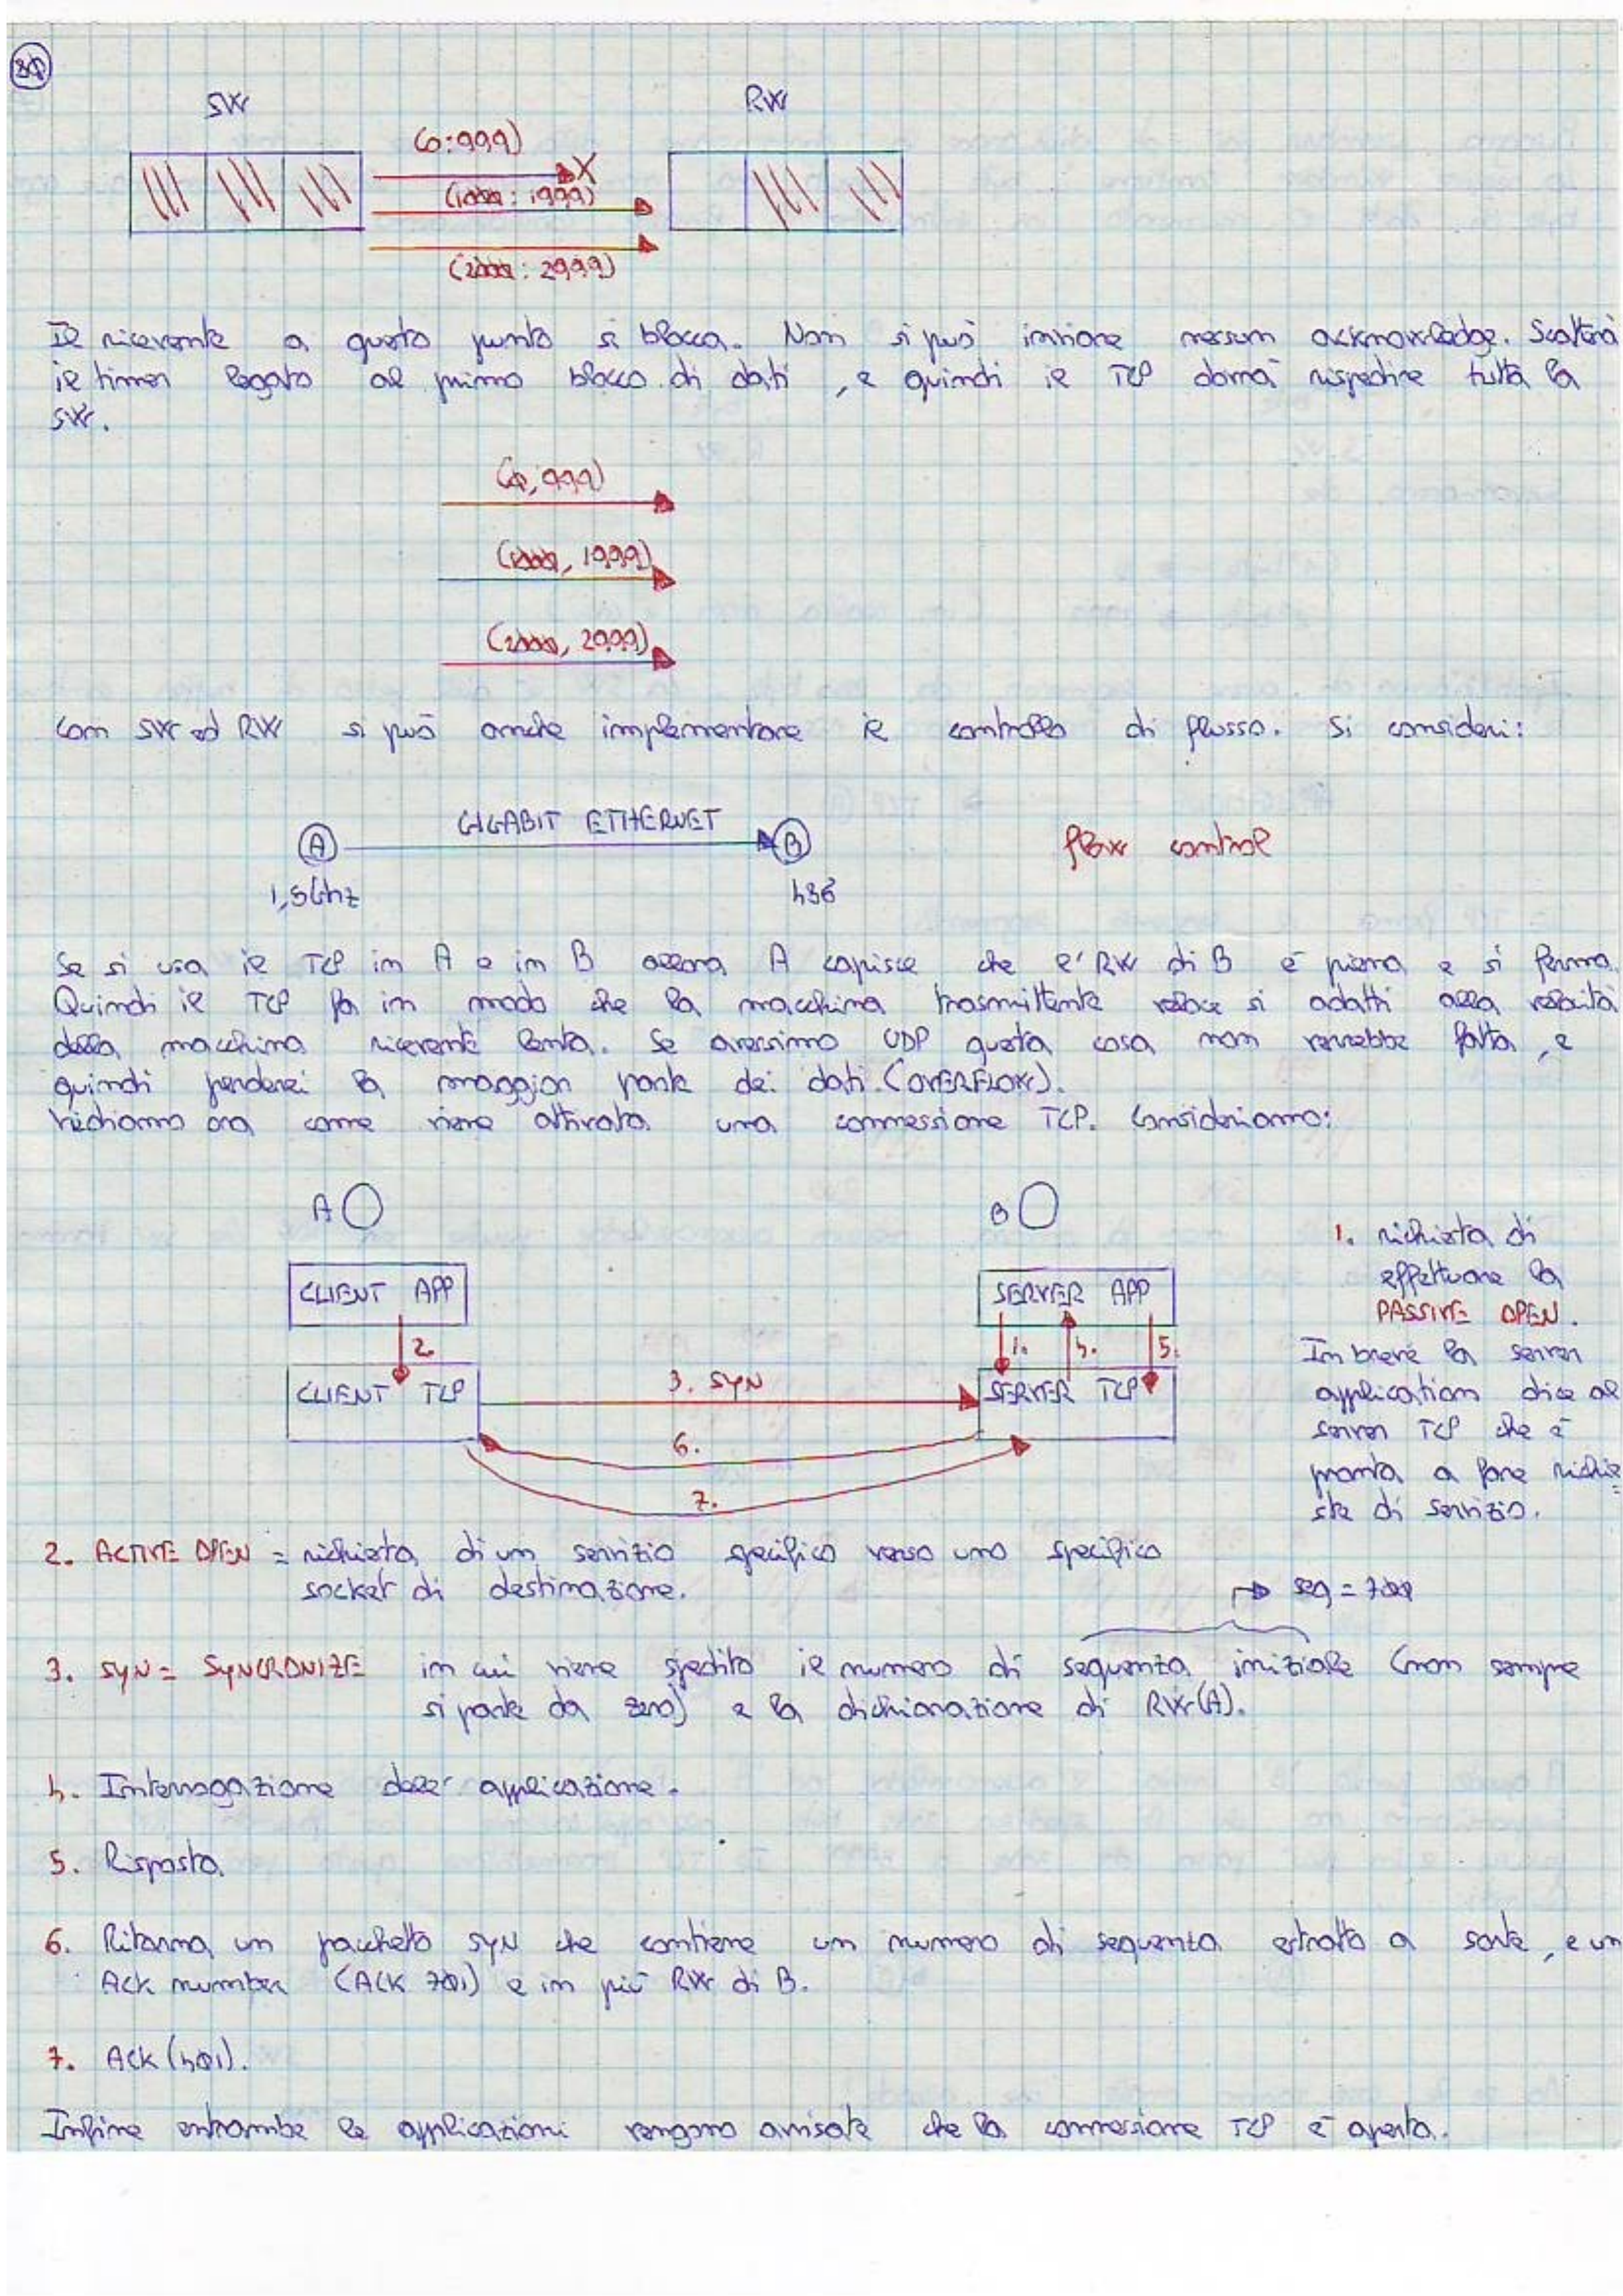 30
SW RW
(0:999)
(1000:1999)
(2000:2999)
Il ricevente a questo punto si blocca. Non si può inviare nessun acknowledge. Scatterà
il timer legato al primo blocco di dati, e quindi il TCP dovrà rispedire tutta la
SW.
(0,999)
(1000,1999)
(2000,2999)
Con SW ed RW si può anche implementare il controllo di flusso. Si consideri:
A GIGABIT ETHERNET B flow control
1,5Ghz 486
Se si usa il TCP in A e in B allora A capisce che l'RW di B è piena e si ferma.
Quindi il TCP fa in modo che la macchina trasmittente veloce si adatti alla velocità
della macchina ricevente lenta. Se avessimo UDP questa cosa non verrebbe fatta, e
quindi perderei la maggior parte dei dati. (OVERFLOW).
Vediamo ora come viene attivata una connessione TCP. Consideriamo:
A B
CLIENT APP
SERVER APP
2.
1. 4. 5.
CLIENT TCP
3. SYN
SERVER TCP
6.
7.
1. richiesta di
effettuare la
PASSIVE OPEN.
In breve la server
application dice al
server TCP che è
pronta a fare richie=
ste di servizio.
2. ACTIVE OPEN = richiesta di un servizio specifico verso uno specifico
socket di destinazione.
seq = 700
3. SYN = SYNCRONIZE in cui viene spedito il numero di sequenza iniziale (non sempre
si parte da zero) e la dichiarazione di RW(A).
4. Interrogazione dell'applicazione.
5. Risposta.
6. Ritorna un pacchetto SYN che contiene un numero di sequenza estratto a sorte, e un
Ack number (ACK 701) e in più RW di B.
7. Ack (401).
Infine entrambe le applicazioni vengono avvisate che la connessione TCP è aperta.